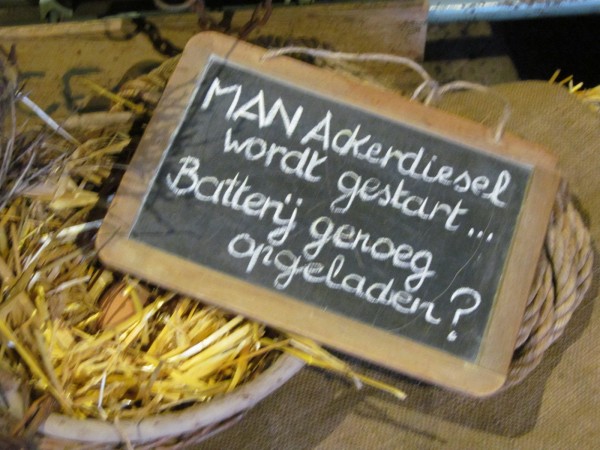 MAN Ackerdiesel
wordt gestart...
Batterij genoeg
opgeladen?